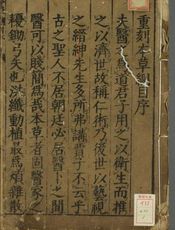 重刻本草綱目序
夫醫之為道君子用之以衛生而推
之以濟世故稱仁術乃後世以藝視
之縉紳先生多所弗講賈子不云乎
古之聖人不居朝廷必居醫卜之間
醫可以賤簡為哉本草者固醫家之
耰鋤弓矢也洪纖動植最為煩雜